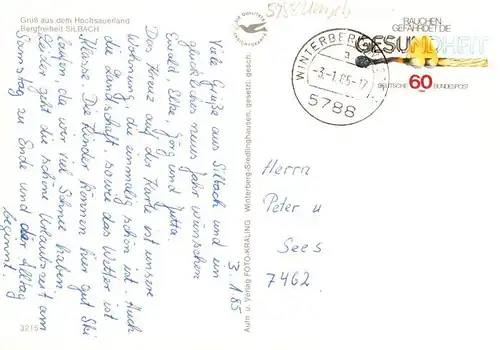 Gruß aus dem Hochsauerland
Bergfreiheit SILBACH
3.1.85
Viele Grüße aus Silbach und ein
glückliches neues Jahr wünschen
Ewald, Elke, Jörg und Jutta.
Das Kreuz auf der Karte ist unsere
Wohnung, die einmalig schön ist. Auch
die Landschaft, sowie das Wetter ist
Klasse. Die Kinder können hier gut Ski
laufen, da wir viel Schnee haben.
Leider geht die schöne Urlaubszeit am
Samstag zu Ende und der Alltag
beginnt.
3215
Aufn. u. Verlag FOTO-KRALING Winterberg-Siedlinghausen, gesetzl. gesch.
5788
WINTERBERG
a
-3.-1.85-17
5788
RAUCHEN
GEFÄHRDET DIE
GESUNDHEIT
DEUTSCHE 60 BUNDESPOST
Herrn
Peter u
Sees
7462